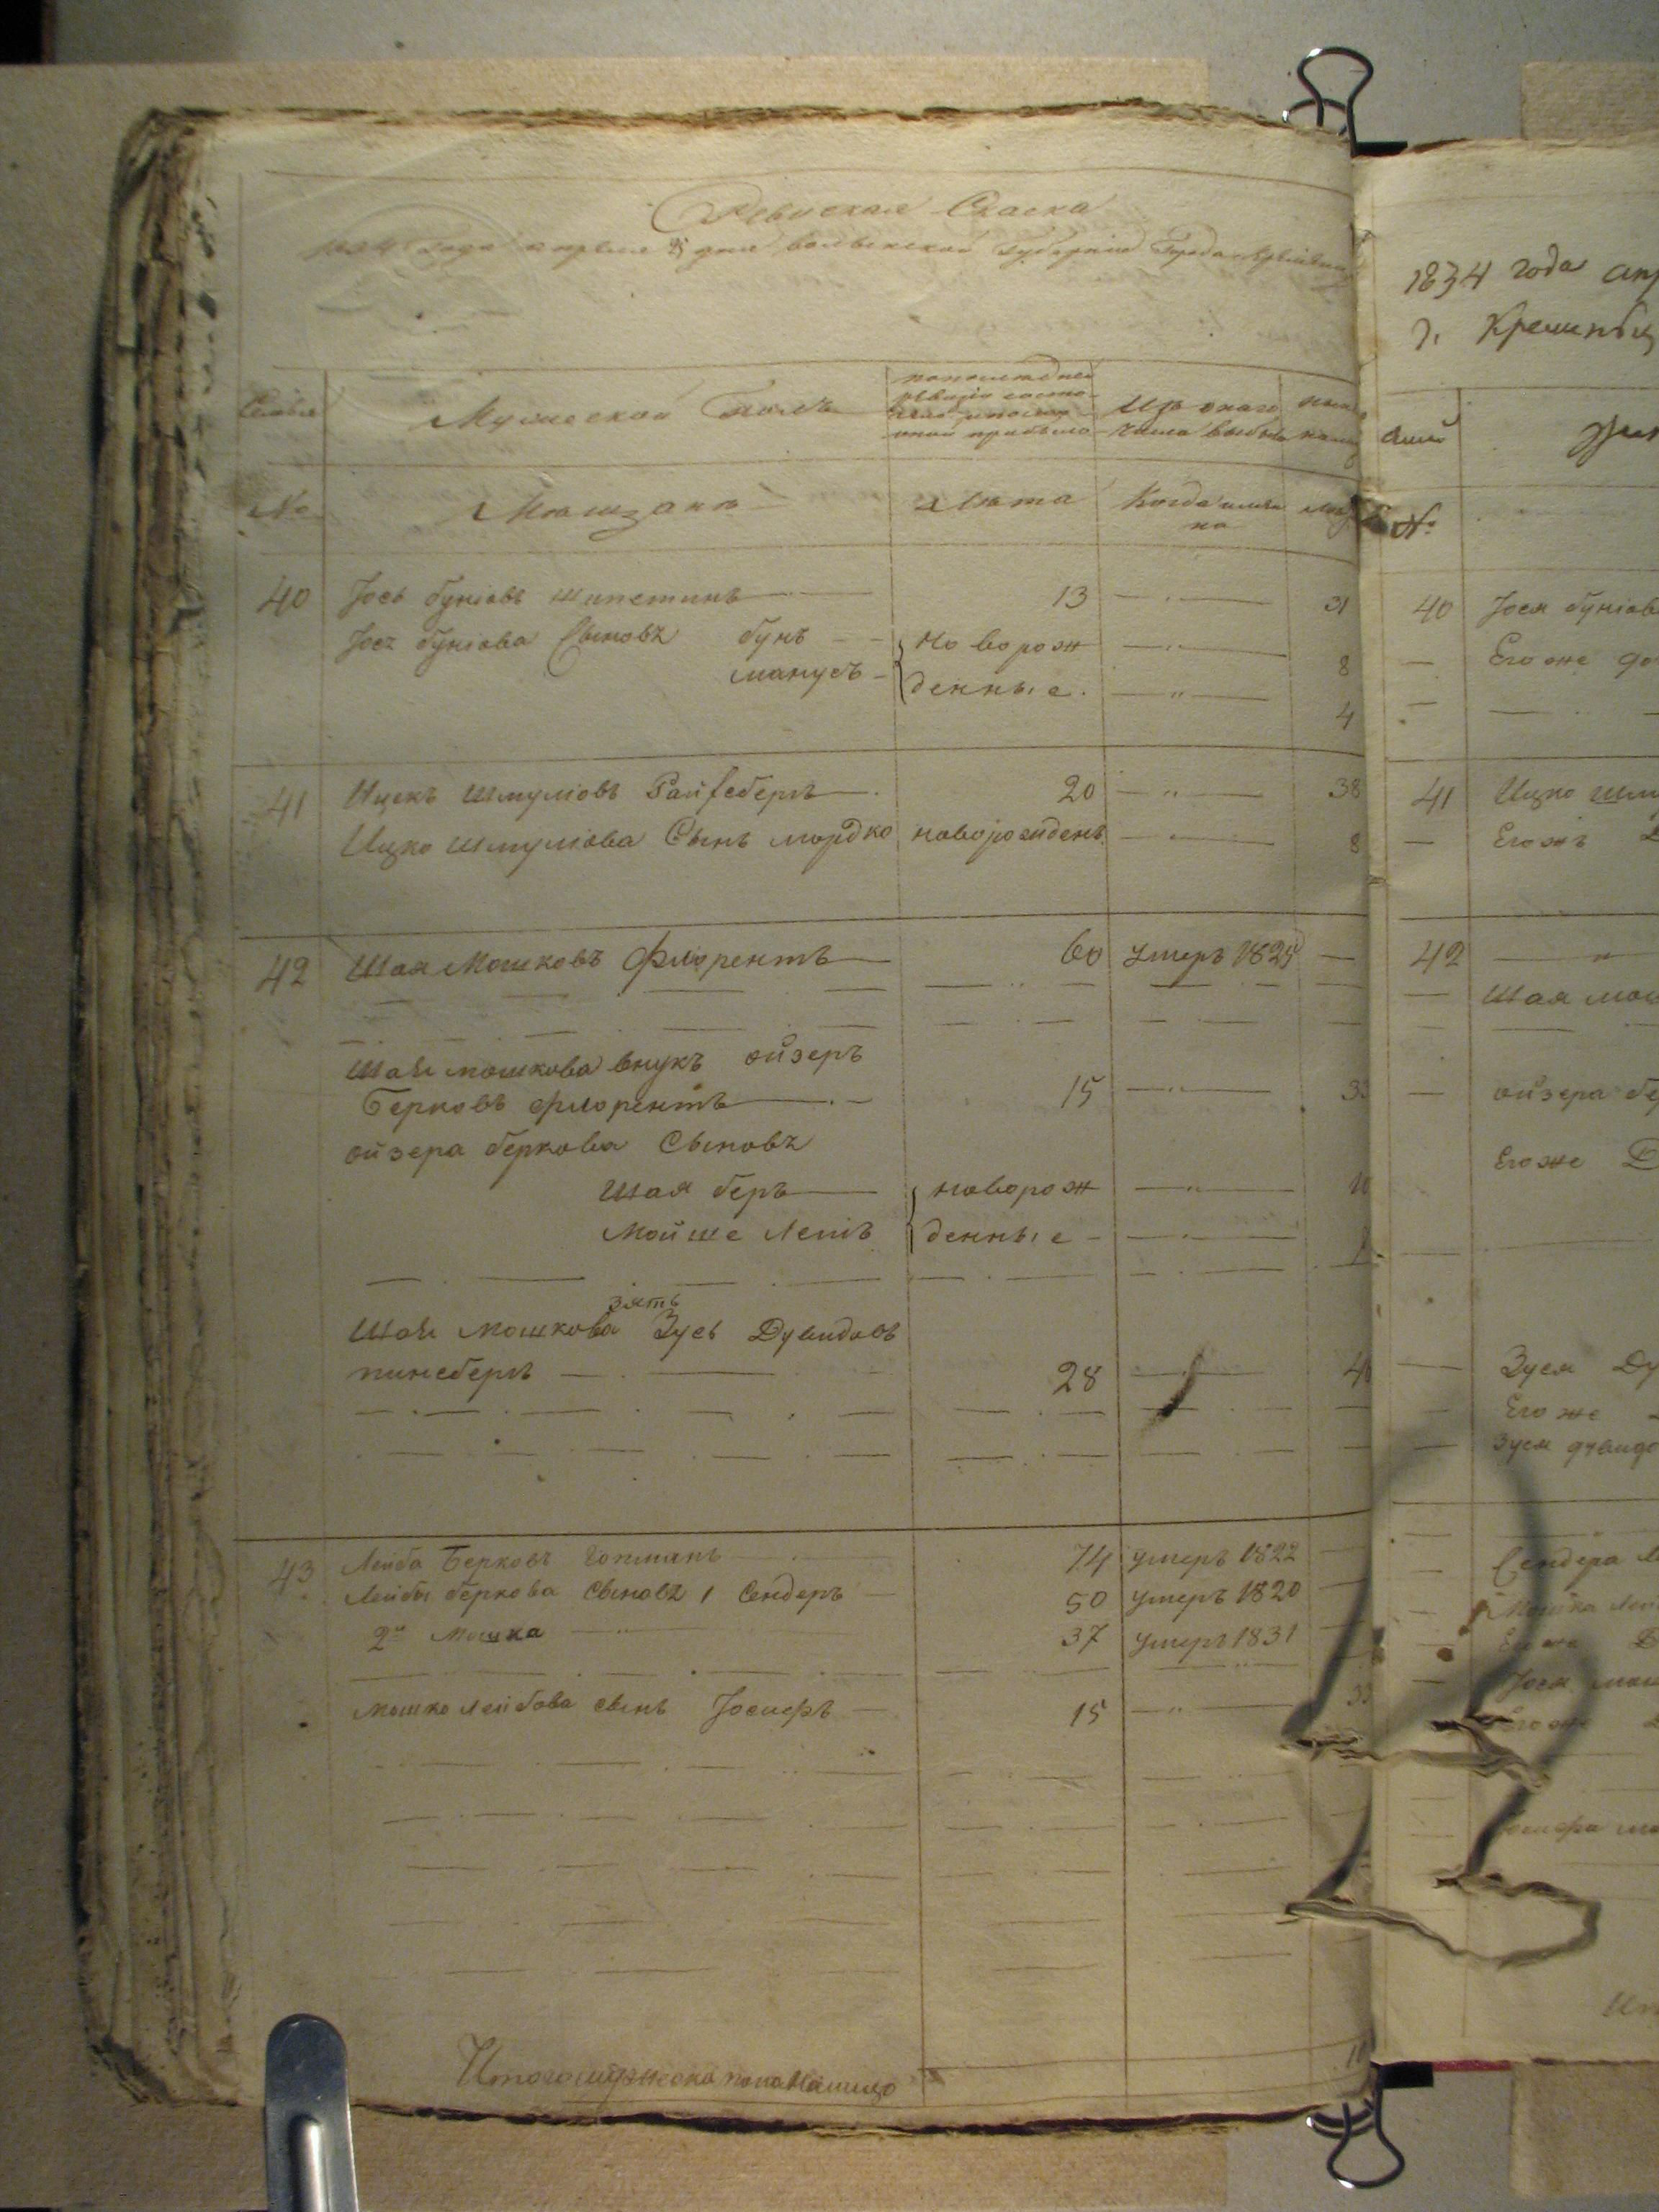 Ревиская Сказка
1834 года апреля 25 дня волынской губернии Города Кременца
Семьи
Мужеской полъ
попоследней
ревизіи состо-
онай прибыло
Изъ онаго
числа выбыло
ныне
№
Мещзанъ
Лета
Когда имян
но
Лета
40 Іось буніовъ шипстинъ 13 31
Іося буніова Сыновъя бунъ новорож 8
манусъ денные. 4
41 Ицекъ шмуліовъ Райfебергъ 20 38
Ицко шмуліова Сынъ мордко новорожденъ 8
42 Шая Мошковъ Флорентъ 60 умеръ 1824
Шаи мошкова внукъ ойзеръ
Берковъ флорентъ 15 33
ойзера беркова Сыновя
Шая беръ новорож 10
Мойше Лейб денные
зять
Шаи мошкова Зусь Дувидовъ
пинсбергъ 28 46
43 Лейба Берковъ 74 умеръ 1822
Лейбы беркова Сыновя 1 Сендеръ 50 умеръ 1820
2й Мошка 37 умеръ 1831
мошко лейбова сынъ Іосифъ 15 33
Итого мужеска пола налицо 10
1834 года апр
г. Кременец
№
40 Іося буніова
Его же до
41 Ицко шму
Егожъ
42
Шая мош
ойзера бе
Егоже
Зуся Ду
Его же
Зуся дувидо
Сендера Ле
Мошка лей
Его же
Іося мош
Его же